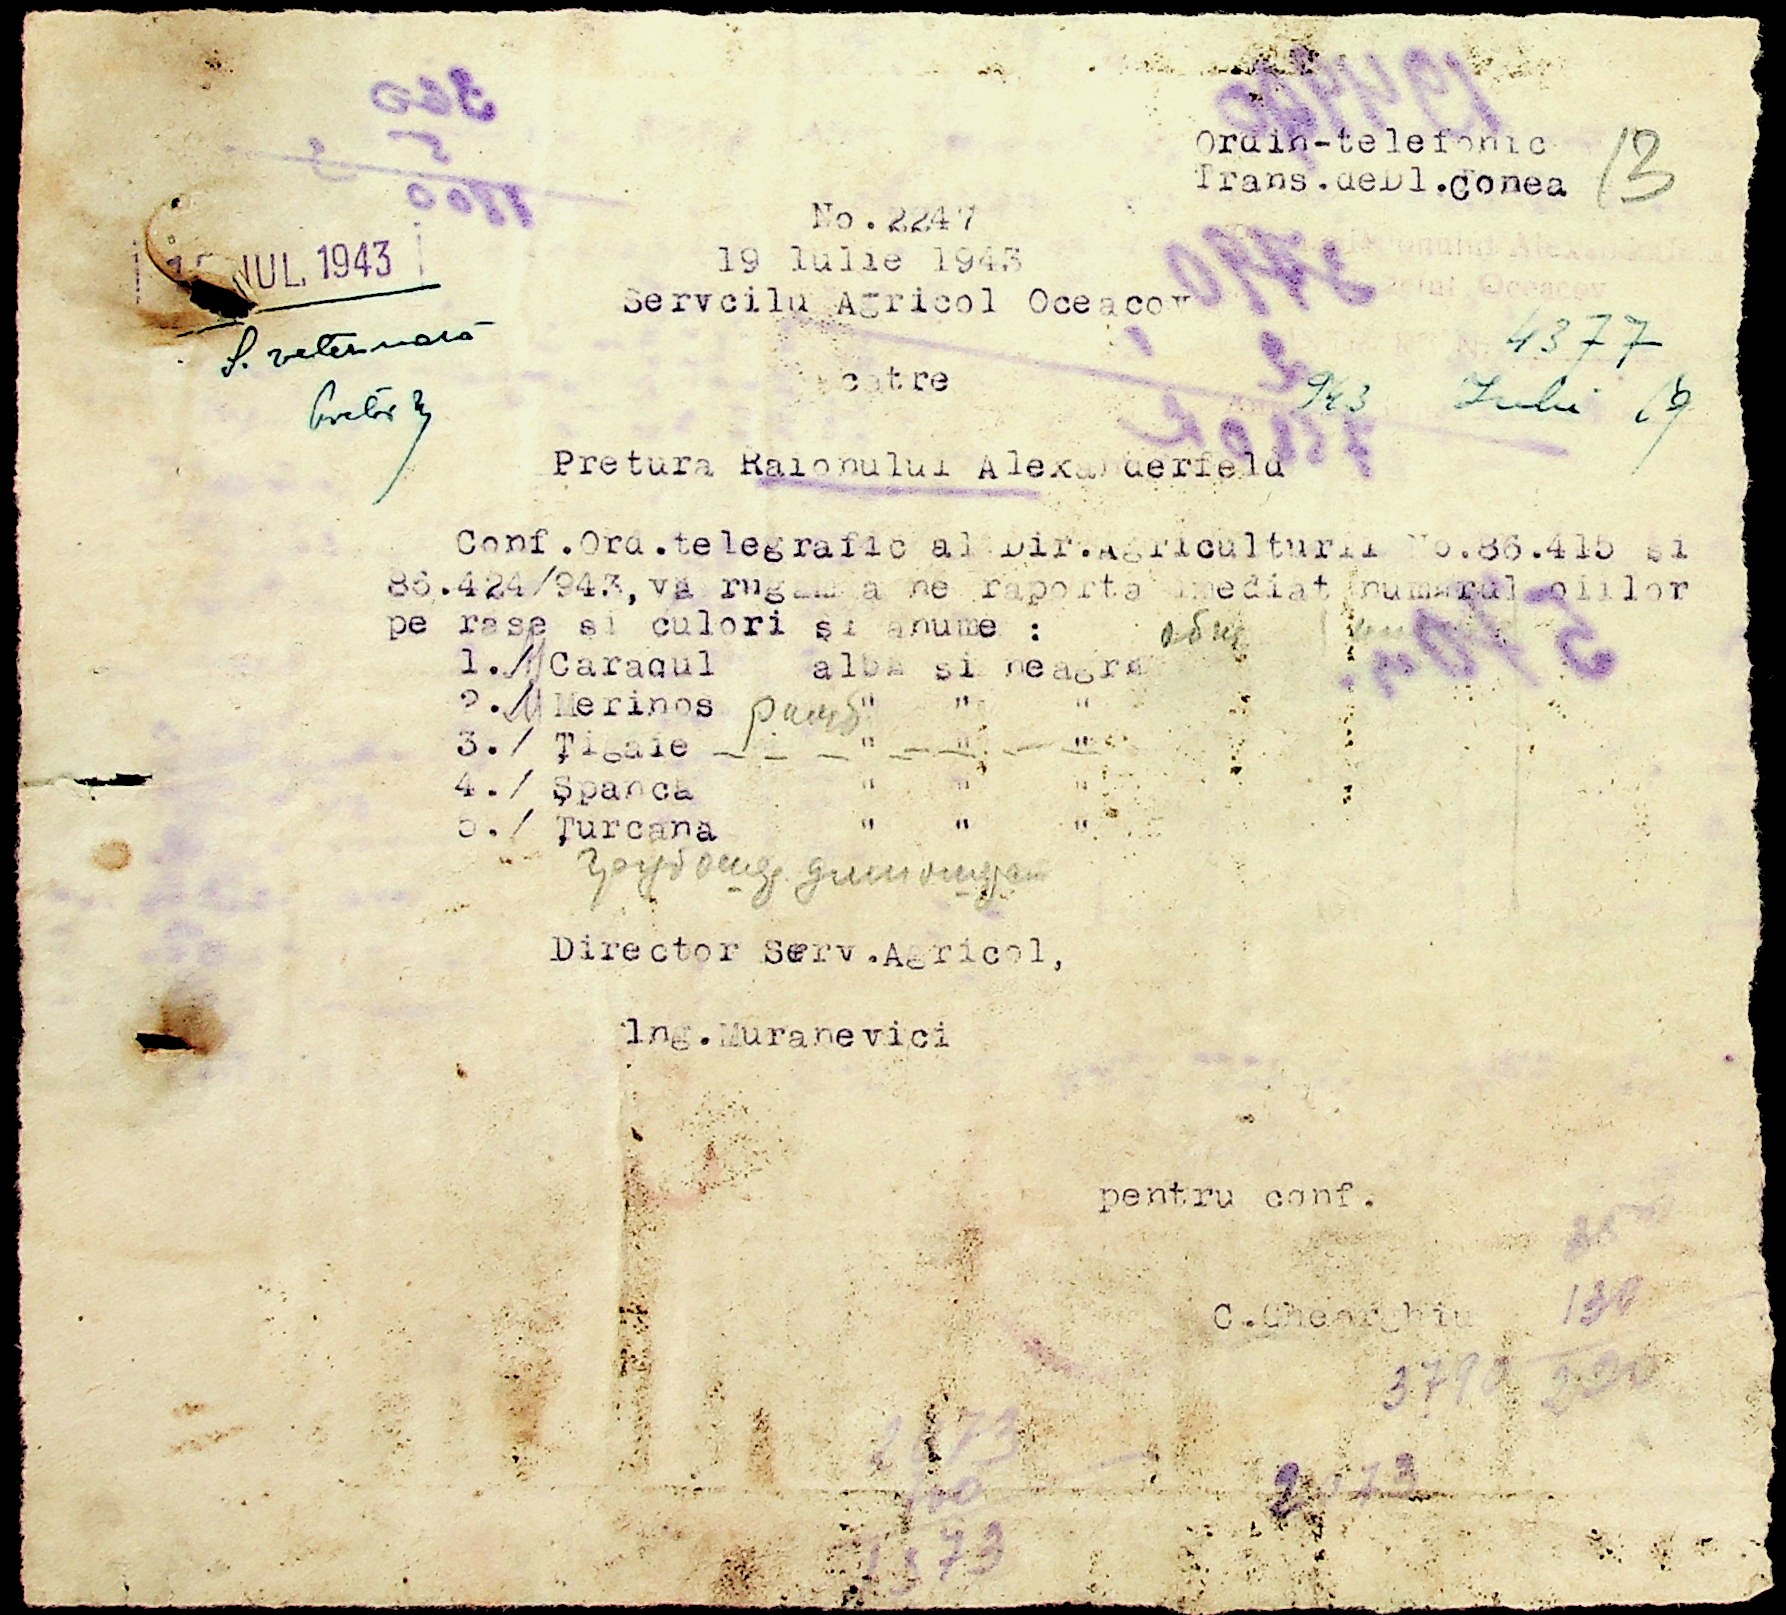 Ordin-telefonic
Trans.deDl.Conea
13
No.2247
19 Iulie 1943
IUL. 1943
Servcilu Agricol Oceacov
S. veterinară
Pretor
4377
943 Iulie 19
catre
Pretura Raionului Alexanderfeld
Conf.Ord.telegrafic al Dir.Agriculturii No.86.415 si
86.424/943,va rugam a ne raporta imediat numarul oiilor
pe rase si culori si anume :
1./ Caracul alba si neagra
2./ Merinos " " "
3./ Țigaie " " "
4./ Șpanca " " "
5./ Țurcana " " "
Director Serv.Agricol,
Ing.Muranevici
pentru conf.
C.Gheorghiu
130
3790 220
2073
2073
100
1373